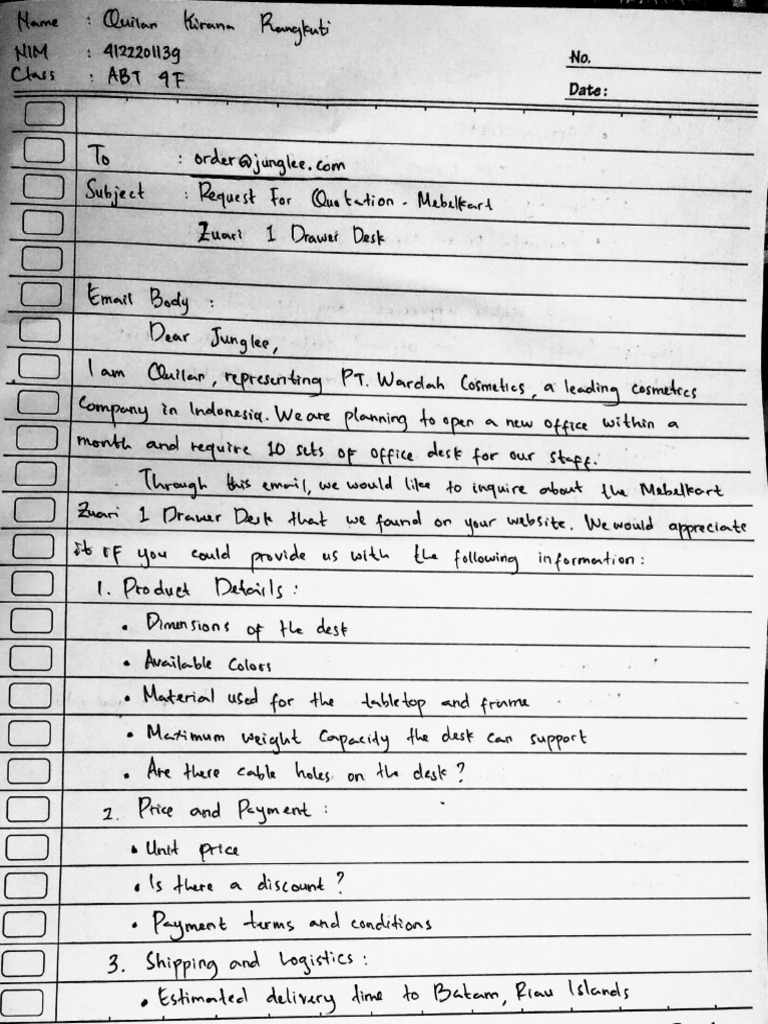 Name : Quilan Kirana Rangkuti
NIM : 4122201139
Class : ABT 4F
No.
Date:
To : order@junglee.com
Subject : Request For Quotation - Mebelkart
Zuari 1 Drawer Desk
Email Body :
Dear Junglee,
I am Quilan, representing PT. Wardah Cosmetics, a leading cosmetics
company in Indonesia. We are planning to open a new office within a
month and require 10 sets of office desk for our staff.
Through this email, we would like to inquire about the Mebelkart
Zuari 1 Drawer Desk that we found on your website. We would appreciate
it if you could provide us with the following information :
1. Product Details :
• Dimensions of the desk
• Available Colors
• Material used for the tabletop and frame
• Maximum weight capacity the desk can support
• Are there cable holes on the desk ?
2. Price and Payment :
• Unit price
• Is there a discount ?
• Payment terms and conditions
3. Shipping and Logistics :
• Estimated delivery time to Batam, Riau Islands